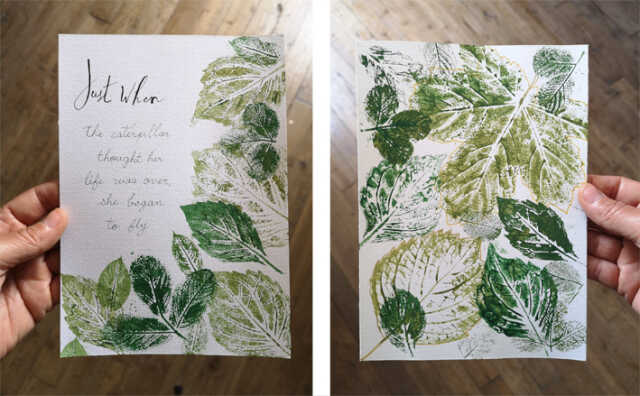 Just When
the caterpillar
thought her
life was over,
she began
to fly